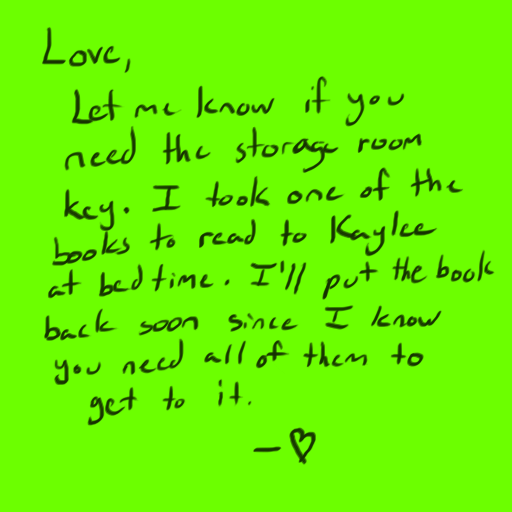 Love,
Let me know if you
need the storage room
key. I took one of the
books to read to Kaylee
at bedtime. I'll put the book
back soon since I know
you need all of them to
get to it.
—♡